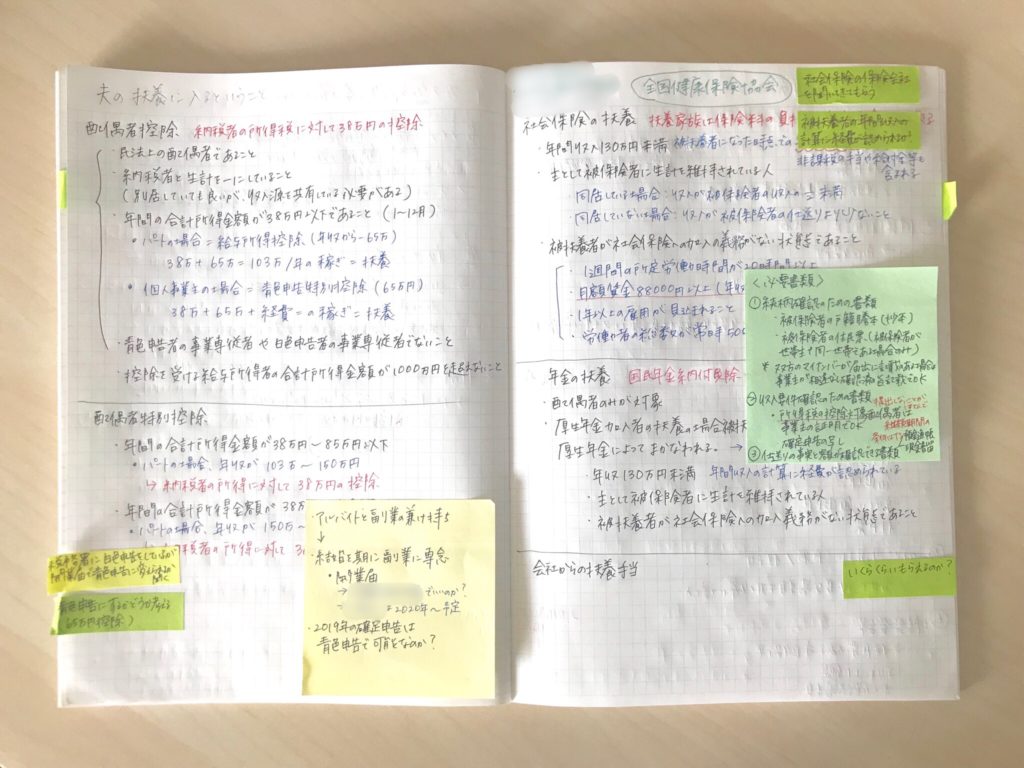 夫の扶養に入るということ
配偶者控除 納税者の所得税に対して38万円の控除
・民法上の配偶者であること
・納税者と生計を一にしていること
(別居していても良いが、収入源を共有している必要がある)
・年間の合計所得金額が38万円以下であること (1~12月)
・パートの場合=給与所得控除(年収から-65万)
38万+65万=103万/年の稼ぎ=扶養
・個人事業主の場合=青色申告特別控除(65万円)
38万+65万+経費=の稼ぎ=扶養
・青色申告者の事業専従者や白色申告者の事業専従者でないこと
・控除を受ける給与所得者の合計所得金額が1000万円を超えないこと
配偶者特別控除
・年間の合計所得金額が38万円~85万円以下
・パートの場合、年収が103万~150万円
↳納税者の所得に対して38万円の控除
・年間の合計所得金額が38万
・パートの場合、年収が150万~
税者の所得に対して
税務署に白色申告をしているが
開業届で青色申告に変えられるか
青色申告にするかどうか考える
(65万円控除)
・アルバイトと副業の兼け持ち
↓
・未就園を期に副業に専念
・開業届
→ でいいのか?
→ 2020年~予定
・2019年の確定申告は
青色申告で可能なのか?
全国健康保険協会
社会保険の保険会社
を聞いてきてもらう
社会保険の扶養 扶養家族は保険料の負
被扶養者の年間収入の
計算に経費が認められるか?
・年間収入130万円未満 被扶養者になった時点での
非課税の手当や給付金等も
含まれる
・主として被保険者に生計を維持されている人
同居している場合:収入が被保険者の収入の1/2未満
同居していない場合:収入が被保険者の仕送りより少ないこと
・被扶養者が社会保険への加入の義務がない状態であること
・1週間の所定労働時間が20時間以上
・月額賃金88000円以上(年収
・1年以上の雇用が見込まれること
・労働者の総数が常時50
<必要書類>
①続柄確認のための書類
・被保険者の戸籍謄本(抄本)
・被保険者の住民票(被保険者が
世帯主で同一世帯である場合のみ)
*双方のマイナンバーが届出に記載がある場合
事業主が相違なく確認した旨記載でOK
②収入要件確認のための書類
・所得税の控除対象配偶者は
事業主の証明でOK
確定申告の写し
③仕送りの事実と額が確認できる書類
年金の扶養 国民年金納付免除
・配偶者のみが対象
・厚生年金加入者の扶養の場合被扶
厚生年金によってまかなわれる。→
・年収130万円未満 年間収入の計算に経費が認められている
・主として被保険者に生計を維持されている人
・被扶養者が社会保険への加入義務がない状態であること
会社からの扶養手当
いくらくらいもらえるのか?